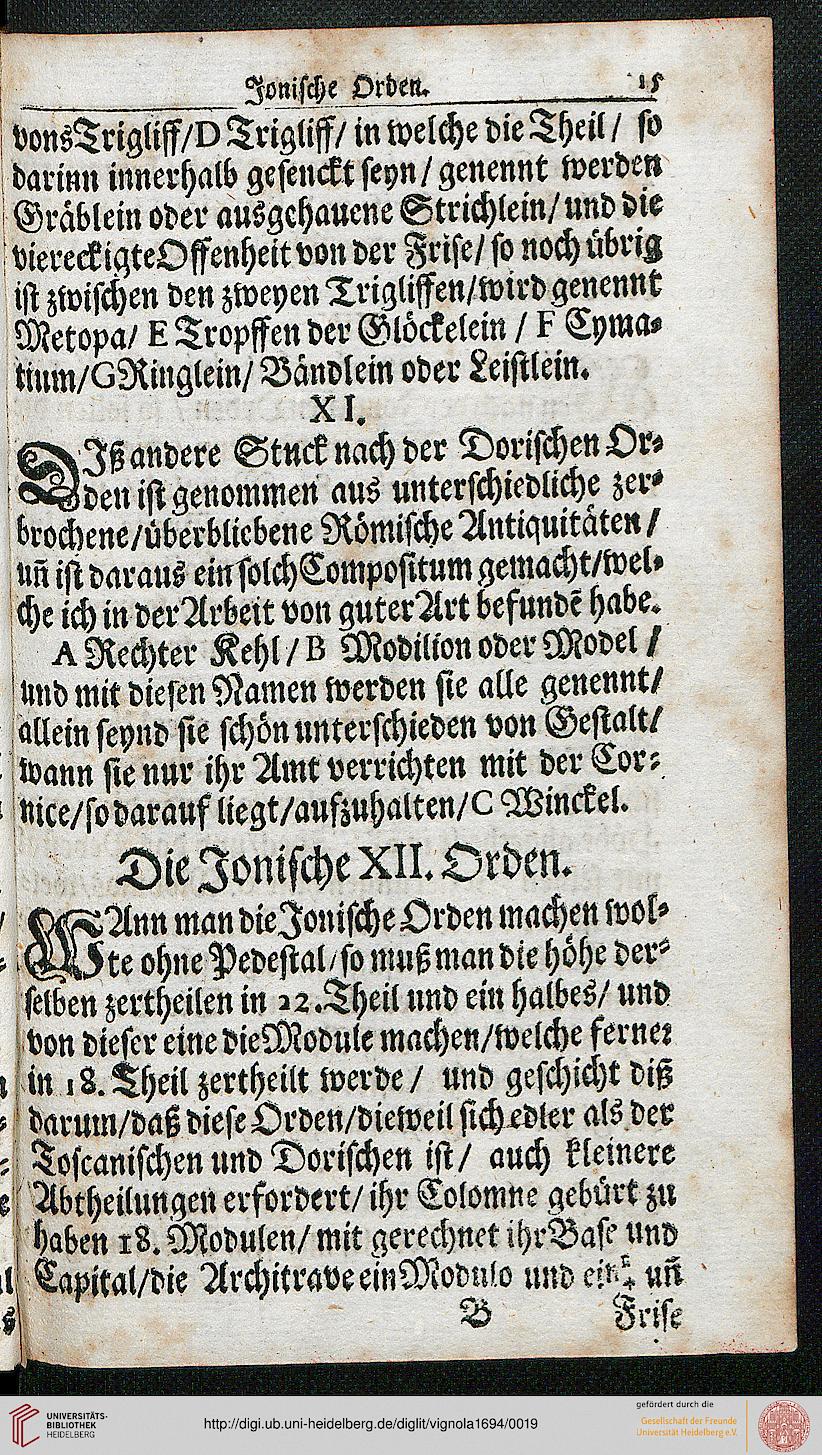 Jonische Orden. 15
vons Trigliff/D Trigliff/ in welche die Theil/ so
darinn innerhalb gesenckt seyn/ genennt werden
Gräblein oder ausgehauene Strichlein/ und die
viereckigte Offenheit von der Frise/ so noch übrig
ist zwischen den zweyen Trigliffen/wird genennt
Metopa/ E Tropffen der Glöckelein / F Cyma-
tium/G Ringlein/ Bändlein oder Leistlein.
XI.
DIß andere Stuck nach der Dorischen Or-
den ist genommen aus unterschiedliche zer-
brochene/überbliebene Römische Antiquitäten/
uñ ist daraus ein solch Compositum gemacht/wel-
che ich in der Arbeit von guter Art befundē habe.
A Rechter Kehl/ B Modilion oder Model /
und mit diesen Namen werden sie alle genennt/
allein seynd sie schön unterschieden von Gestalt/
wann sie nur ihr Amt verrichten mit der Cor-
nice/so darauf liegt/aufzuhalten/C Winckel.
Die Jonische XII. Orden.
WAnn man die Jonische Orden machen wol-
te ohne Pedestal/so muß man die höhe der-
selben zertheilen in 22. Theil und ein halbes/ und
von dieser eine die Module machen/welche ferner
in 18. Theil zertheilt werde/ und geschicht diß
darum/daß diese Orden/dieweil sich edler als der
Toscanischen und Dorischen ist/ auch kleinere
Abtheilungen erfordert/ihr Colomne gebürt zu
haben 18. Modulen/ mit gerechnet ihr Base und
Capital/die Architrave ein Modulo und ein uñ
B Frise
UNIVERSITÄTS-
BIBLIOTHEK
HEIDELBERG
http://digi.ub.uni-heidelberg.de/diglit/vignola1694/0019
gefördert durch die
Gesellschaft der Freunde
Universität Heidelberg e.V.